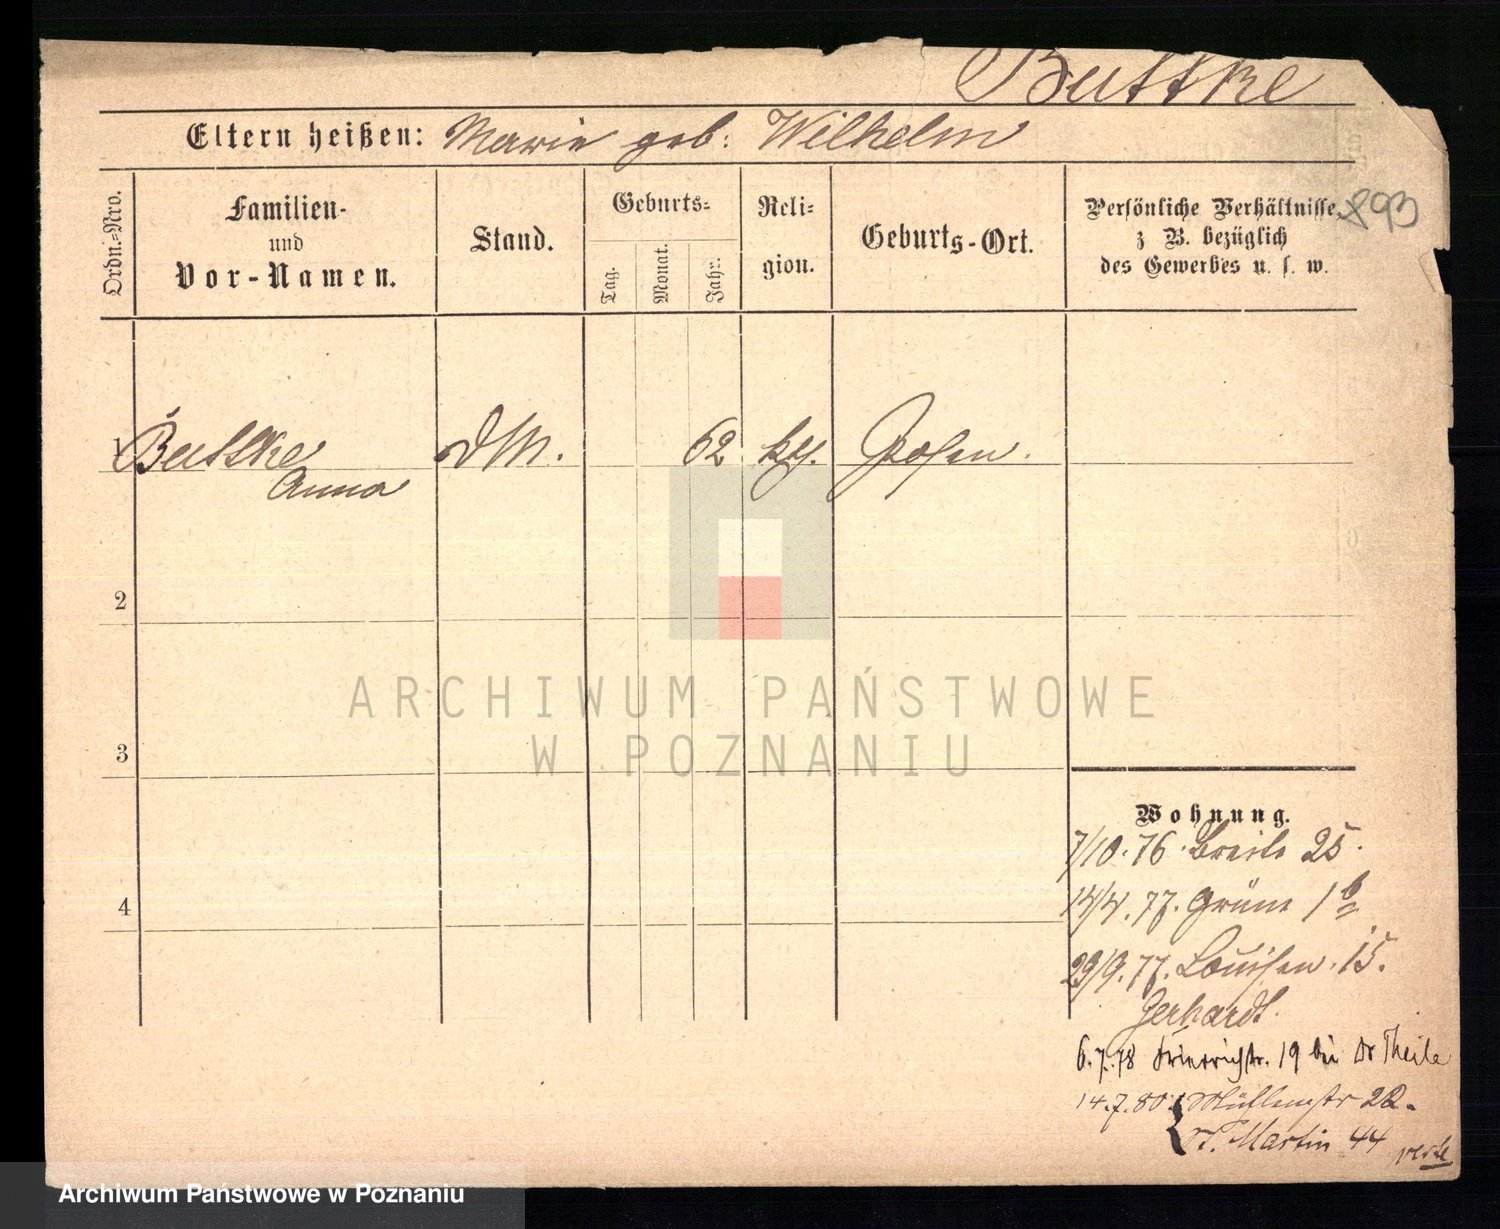 Buttke
Eltern heißen: Marie geb: Wilhelm
893
Ordn.-Nro.
Familien-
und
Vor-Namen.
Stand.
Geburts-
Tag.
Monat.
Jahr.
Reli-
gion.
Geburts-Ort.
Persönliche Verhältnisse,
z B. bezüglich
des Gewerbes u. s. w.
1 Buttke DM. 62 kth. Posen.
Anna
2
3
4
ARCHIWUM PAŃSTWOWE
W POZNANIU
Wohnung.
7/10. 76. Breite 25.
14/4. 77. Grüne 1 b
29/9. 77. Louisen. 15.
Gerhardt.
6.7.78 19 bei Dr Theile
14.7.80. Mühlenstr 22.
St. Martin 44
Archiwum Państwowe w Poznaniu